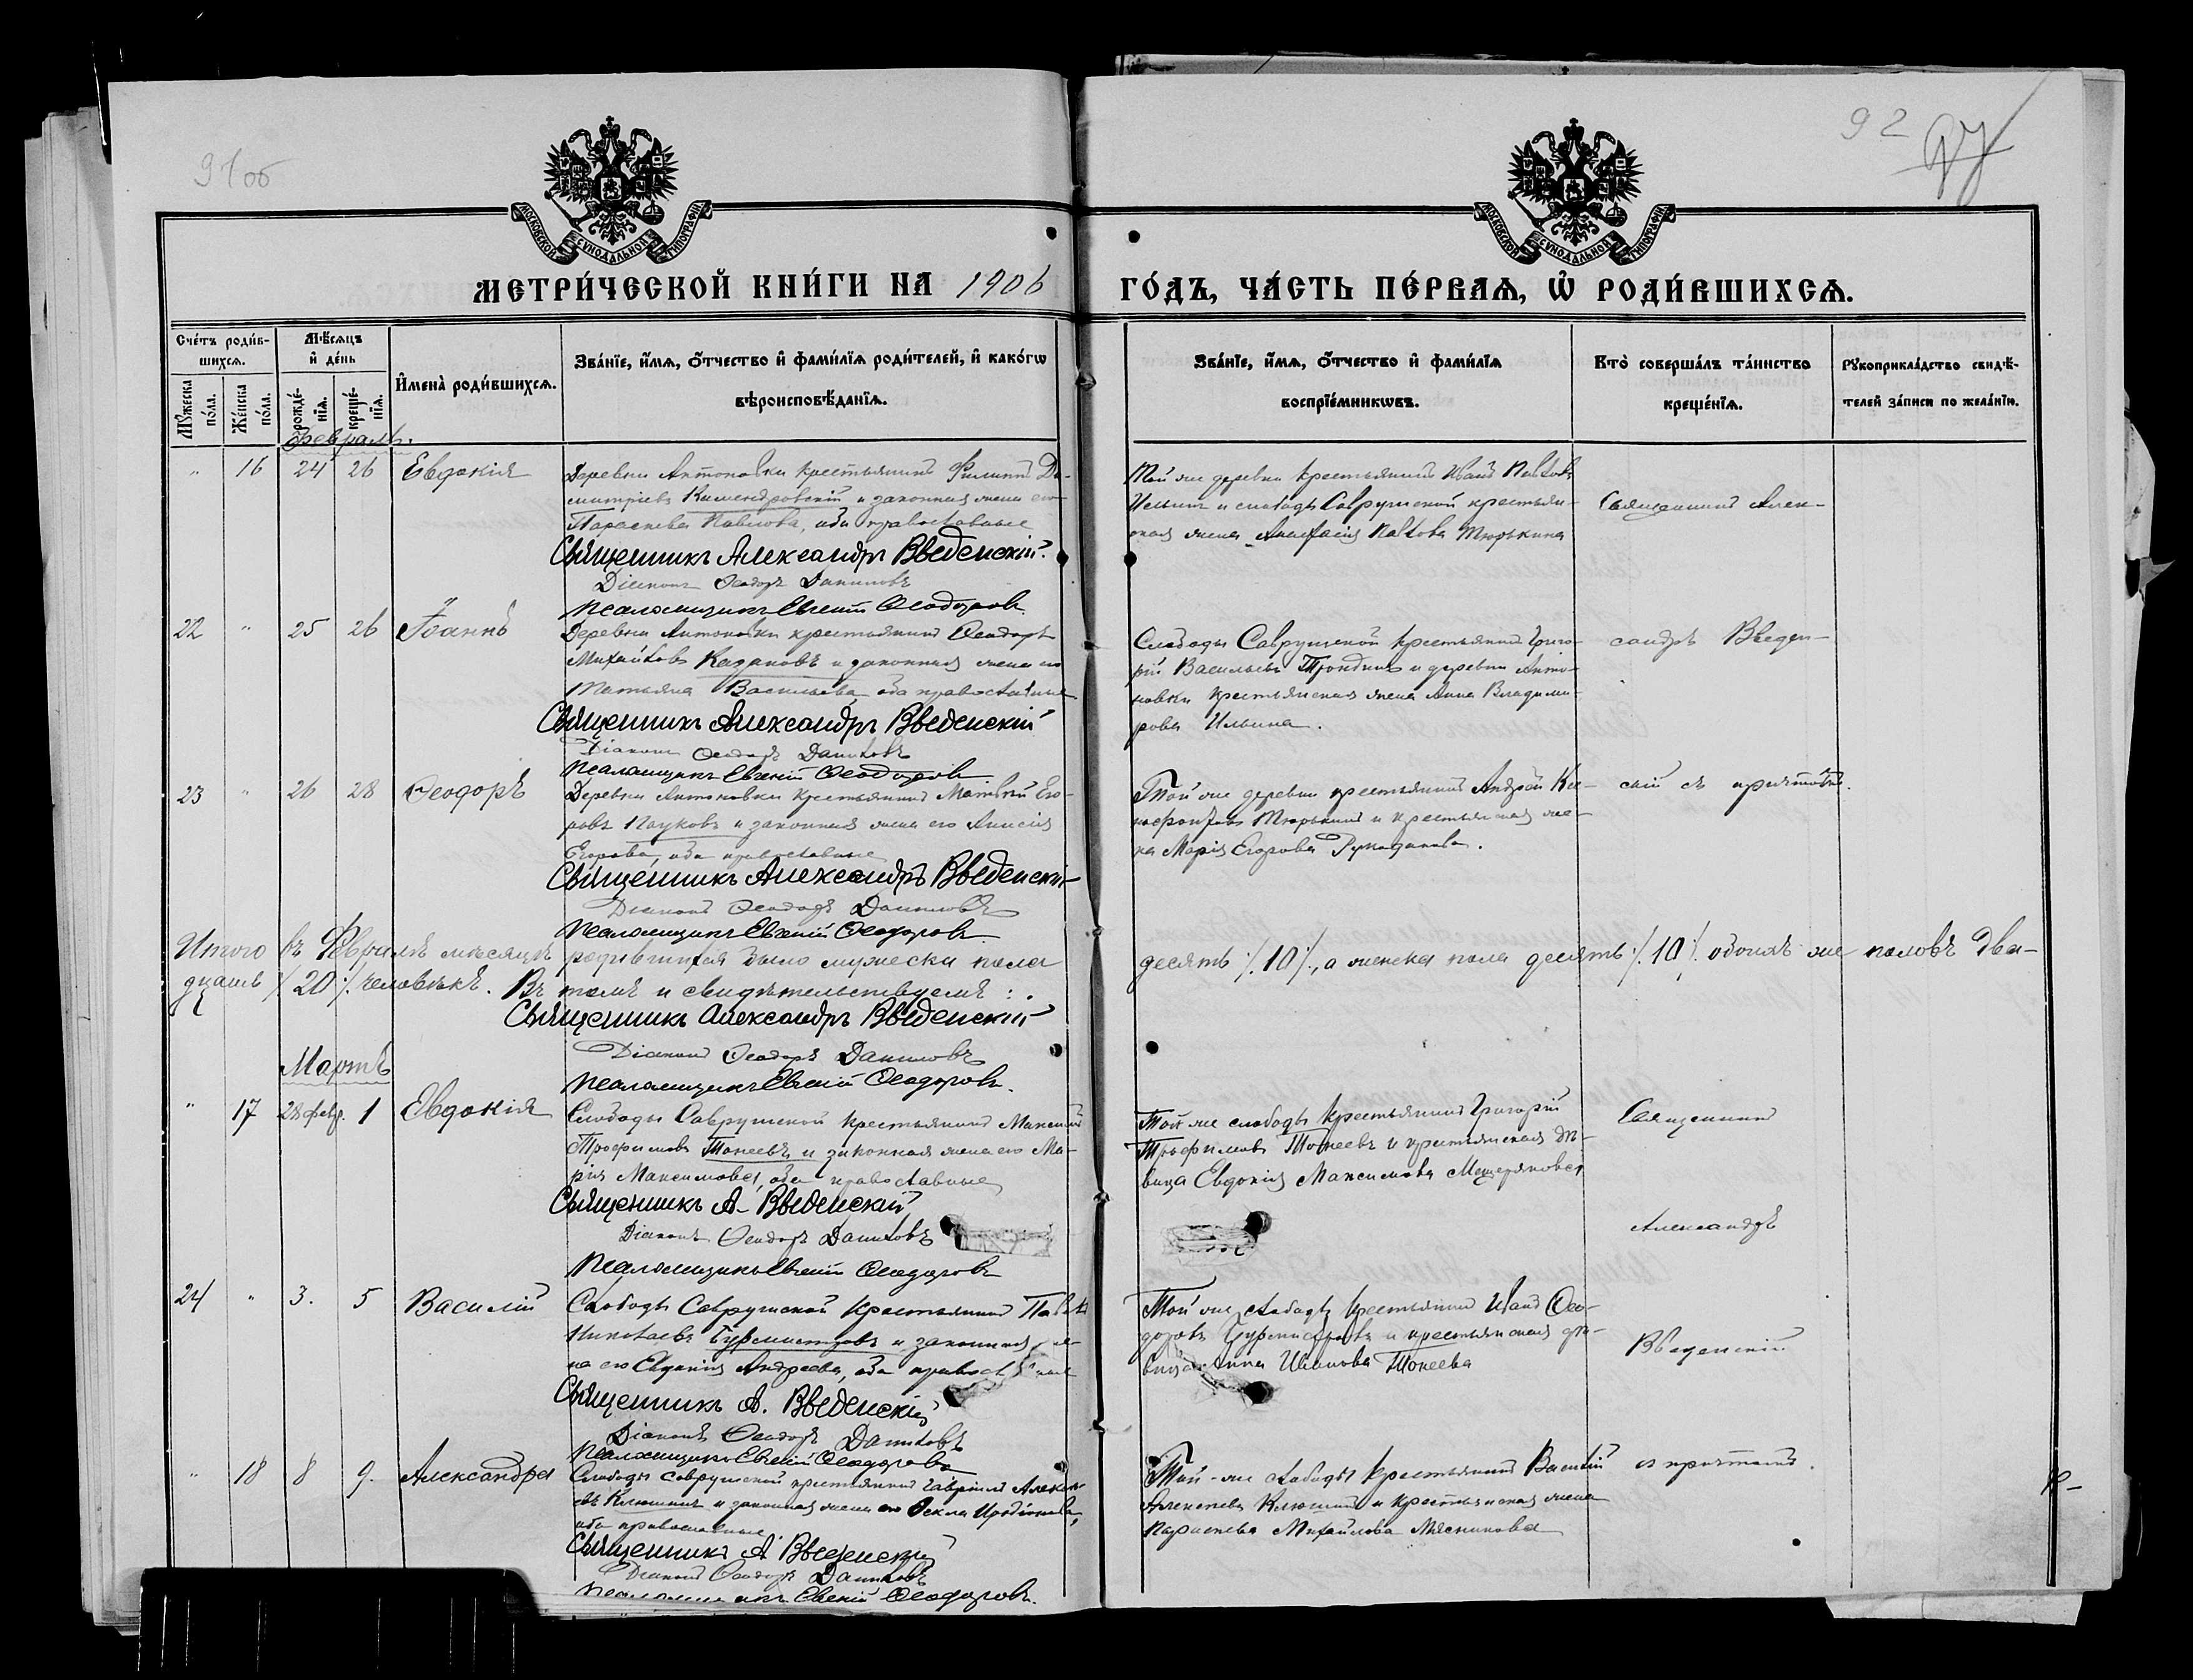 91об
92
МОСКОВСКОЙ СѴНОДАЛЬНОЙ ТИПОГРАФІИ
МОСКОВСКОЙ СѴНОДАЛЬНОЙ ТИПОГРАФІИ
МЕТРИ́ЧЕСКОЙ КНИ́ГИ НА 1906
ГО́ДЪ, ЧА́СТЬ ПЕ́РВАѦ, Ѡ҆ РОДИ́ВШИХСѦ.
Сче́тъ роди́в-
шихсѧ.
Мѣ́сѧцъ
и҆ де́нь
Мꙋ́жеска по́ла.
Же́нска по́ла.
рожде́-
нїѧ.
креще́-
нїѧ.
И҆мена̀ роди́вшихсѧ.
Зва́нїе, и҆́мѧ, ѻ҆́тчество и҆ фами́лїѧ роди́телей, и҆ како́гѡ
вѣроисповѣ́данїѧ.
Зва́нїе, и҆́мѧ, ѻ҆́тчество и҆ фами́лїѧ
воспрїе́мникѡвъ.
Кто̀ соверша́лъ та́инство
креще́нїѧ.
Рꙋкоприкла́дство свидѣ́-
телей за́писи по жела́нїю.
Февраль.
" 16 24 26 Евдокія
Деревни Антоновки крестьянинъ Филиппъ Ди-
митріевъ и законная жена его
Параскева Павлова, оба православные
Священникъ Александръ Введенскій.
Діаконъ Ѳеодоръ Даниловъ
Псаломщикъ Евгеній Ѳеодоровъ
Той же деревни крестьянинъ Иванъ Павловъ
Ильинъ и слободы Саврушской крестьян-
ская жена Анастасія Павлова Тюрькина
Священникъ Алек-
22 " 25 26 Іоаннъ
Деревни Антоновки крестьянинъ Ѳеодоръ
Михайловъ Казаковъ и законная жена его
Татьяна Васильева, оба православные
Священникъ Александръ Введенскій
Діаконъ Ѳеодоръ Даниловъ
Псаломщикъ Евгеній Ѳеодоровъ
Слободы Саврушской крестьянинъ Григо-
рій Васильевъ Трондинъ и деревни Анто-
новки крестьянская жена Анна Владими-
рова Ильина.
сандръ Введен-
23 " 26 28 Ѳеодоръ
Деревни Антоновки крестьянинъ Матвѣй Его-
ровъ Пауковъ и законная жена его Анисія
Егорова, оба православные
Священникъ Александръ Введенскій
Діаконъ Ѳеодоръ Даниловъ
Псаломщикъ Евгеній Ѳеодоровъ
Той же деревни крестьянинъ Андрей Ки-
Тюрькинъ и крестьянская же-
на Марія Егорова
скій съ причтомъ.
Итого въ Февралѣ мѣсяцѣ родившихся было мужеска пола десять /.10/., а женска пола десять /.10/. обоихъ же половъ два-
дцать /.20/. человѣкъ. Въ томъ и свидѣтельствуемъ:.
Священникъ Александръ Введенскій
Діаконъ Ѳеодоръ Даниловъ
Псаломщикъ Евгеній Ѳеодоровъ.
Мартъ
" 17 28 февр. 1 Евдокія
Слободы Саврушской крестьянинъ Максимъ
Трофимовъ Токеевъ и законная жена его Ма-
рія Максимова, оба православные
Священникъ А. Введенскій
Діаконъ Ѳеодоръ Даниловъ
Псаломщикъ Евгеній Ѳеодоровъ
Той же слободы крестьянинъ Григорій
Трофимовъ Токеевъ и крестьянская дѣ-
вица Евдокія Максимова Мещерякова
Священникъ
Александръ
24 " 3. 5 Василій
Слободы Саврушской крестьянинъ Павелъ
Николаевъ Бурмистровъ и законная же-
на его Евдокія Андреева, оба православные
Священникъ А. Введенскій
Діаконъ Ѳеодоръ Даниловъ
Псаломщикъ Евгеній Ѳеодоровъ
Той же слободы крестьянинъ Иванъ Ѳео-
доровъ Бурмистровъ и крестьянская дѣ-
вица Анна Иванова Токеева
Введенскій
" 18 8 9. Александра
Слободы Саврушской крестьянинъ Гавріилъ Алексѣ-
евъ Клюшинъ и законная жена его Ѳекла Иродіонова,
оба православные.
Священникъ А Введенскій
Діаконъ Ѳеодоръ Даниловъ
Псаломщикъ Евгеній Ѳеодоровъ.
Той-же слободы крестьянинъ Василій
Алексѣевъ Клюшинъ и крестьянская жена
Параскева Михайлова Мясникова
съ причтомъ.